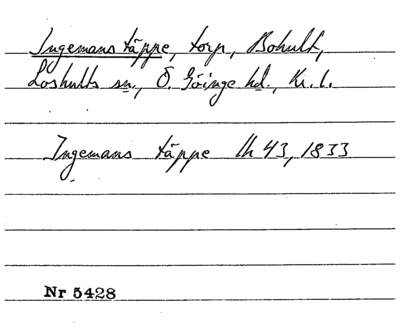 Ingemans täppe, torp, Bohult,
Loshults sn., Ö. Göinge hd., Kr. l.
Ingemans täppe lh 43, 1833
Nr 5428